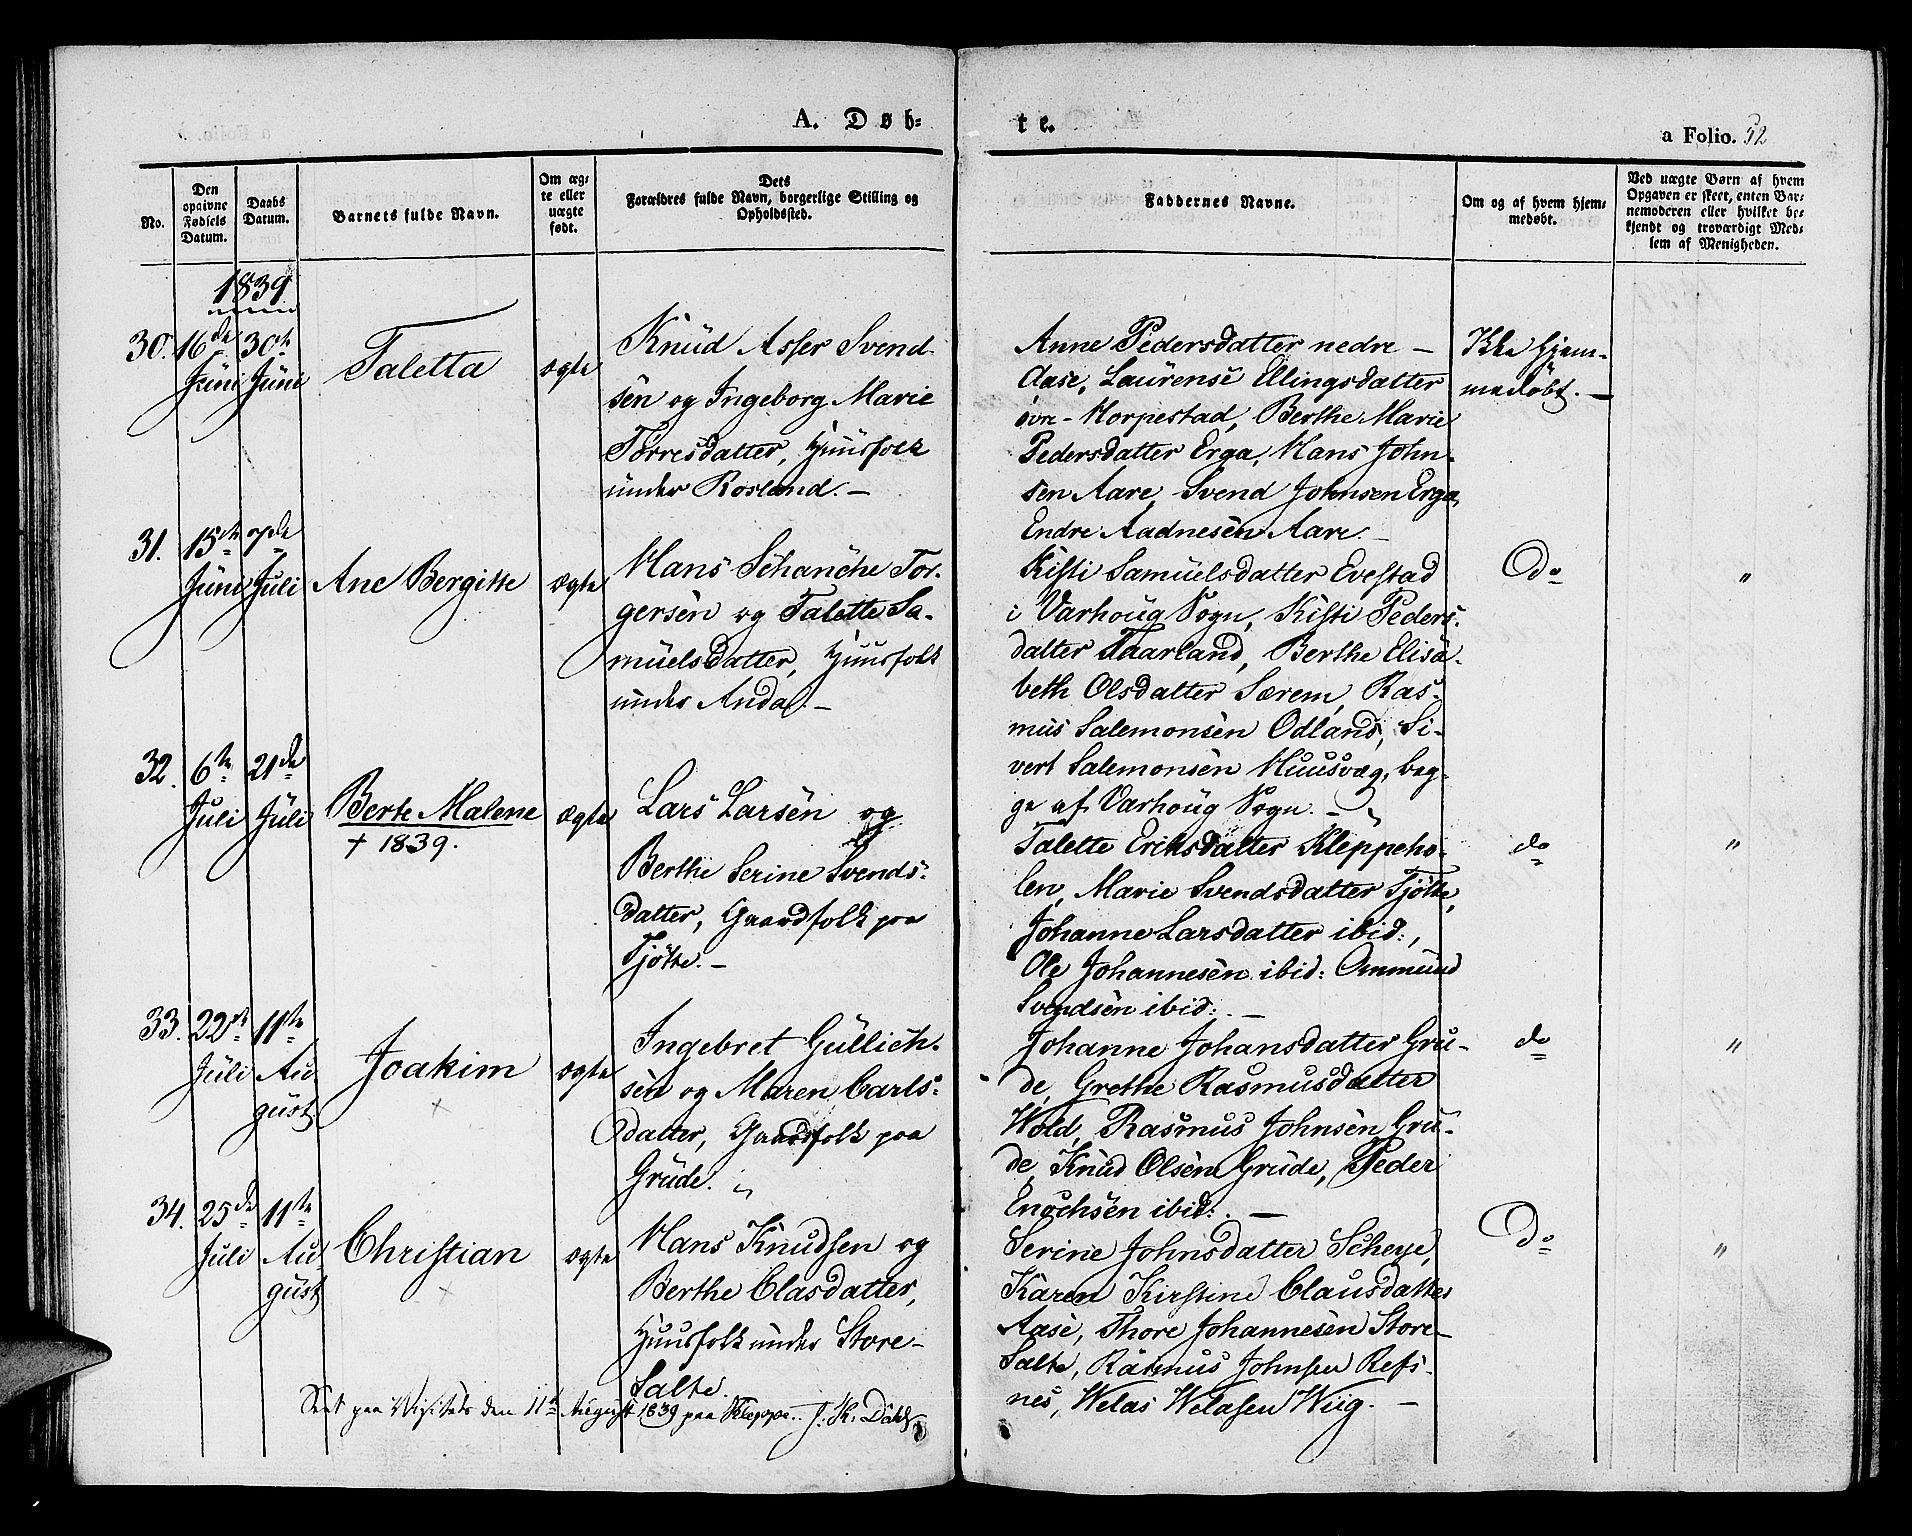 A. Døb=
te.
a Folio. 52
No.
Den opgivne Fødsels Datum.
Daabs Datum.
Barnets fulde Navn.
Om æg= te eller uægte født.
Dets Forældres fulde Navn, borgerlige Stilling og Opholdssted.
Faddernes Navne.
Om og af hvem hjem= medøbt.
Ved uægte Børn af hvem Opgaven er skeet, enten Bar= nemoderen eller hvilket be= kjendt og troværdigt Med= lem af Menigheden.
1839
30.
16de
Juni
30te
Juni
Taletta
ægte
Knud Asser Svend-
sen og Ingeborg Marie
Torresdatter, Huusfolk
under Rosland. –
Anne Pedersdatter nedre –
Aase, Laurense Ellingsdatter
øvre-Horpestad, Berthe Marie
Pedersdatter Erga, Hans John-
sen Aare, Svend Johnsen Erga,
Endre Aadnesen Aare. –
Ikke hjem-
medøbt. –
31.
15de
Juni
7de
Juli
Ane Bergitte
ægte
Hans Schanche Tor-
gersen og Talette Sa-
muelsdatter, Huusfolk
under Anda. –
Kisti Samuelsdatter Evestad
i Varhoug Sogn, Kisti Peders-
datter Taarland, Berthe Elisa-
beth Olsdatter Særem, Ras-
mus Salemonsen Odland, Si-
vert Salemonsen Huusvæg, beg-
ge af Varhoug Sogn. –
Do
"
32.
6te
Juli
21de
Juli
Berte Malene
† 1839.
ægte
Lars Larsen og
Berthe Serine Svends-
datter, Gaardfolk paa
Tjøtte. –
Talette Eriksdatter Kleppeho-
len, Marie Svendsdatter Tjøtte,
Johanne Larsdatter ibid:,
Ole Johannesen ibid: Ommund
Svendsen ibid: . –
do
"
33.
22de
Juli
11te
Au-
gust
Joakim
+
ægte
Ingebret Gullich-
sen og Maren Carls-
datter, Gaardfolk paa
Grude. "
Johanne Johansdatter Gru-
de, Grethe Rasmusdatter
Wold, Rasmus Johnsen Gru-
de, Knud Olsen Grude, Peder
Enochsen ibid: . –
do
"
34.
25de
Juli
11te
Au-
gust
Christian
+
ægte
Hans Knudsen og
Berthe Clasdatter,
Huusfolk under Store-
Salte.
Serine Johnsdatter Scheye,
Karen Kirstine Clausdatter
Aase, Thore Johannesen Store-
Salte, Rasmus Johnsen Refs-
nes, Welas Welasen Wiig. –
Do
"
Seet paa Visitats den 11te August 1839 paa Kleppe. J. K. Dahl